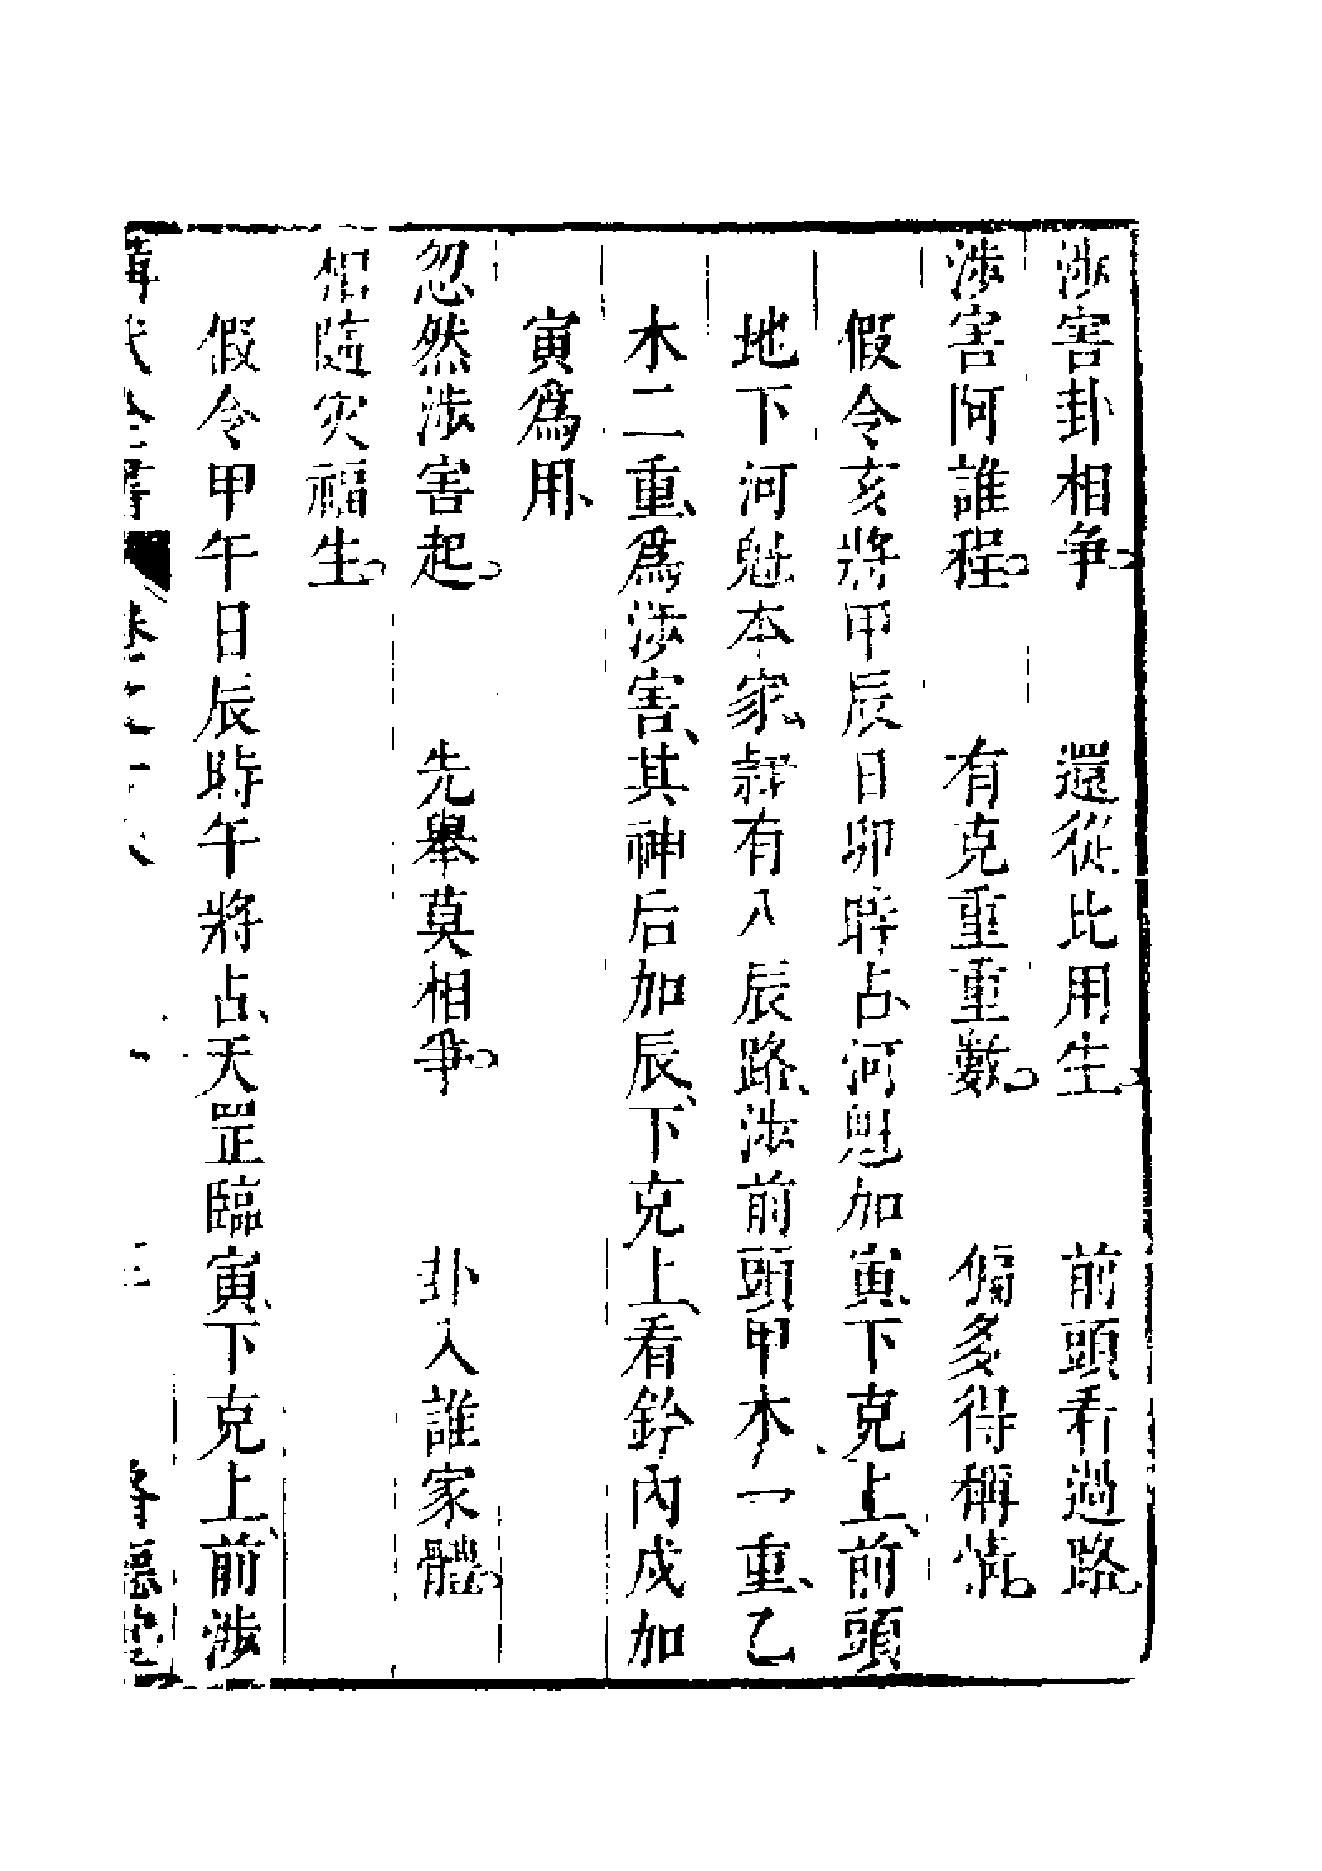 涉害卦相爭。還從比用生。前頭看過路
涉害阿誰程。有克重重數。偏多得稱情。
假令亥將甲辰日卯時占、河魁加寅、下克上、前頭
地下河魁本家、歸有八辰路、涉前頭甲木、一重、乙
木二重、爲涉害、其神后加辰、下克上、看鈐內戍加
寅爲用、
忽然涉害起。先舉莫相爭。卦入誰家體。
相隨災福生。
假令甲午日辰時午將占、天罡臨寅、下克上、前涉